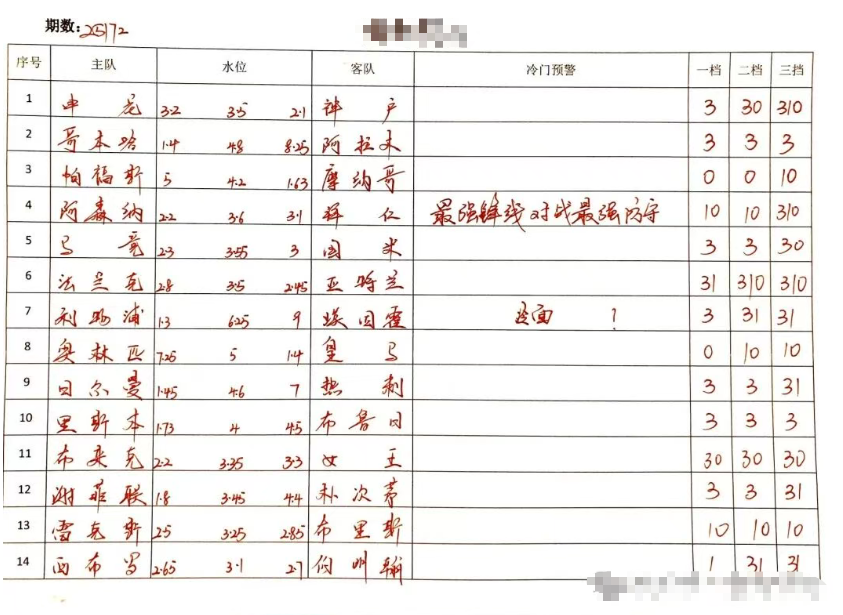 期数: 25172
序号 主队 水位 客队 冷门预警 一档 二档 三挡
1 申花 3.2 3.5 2.1 神户 3 30 310
2 哥本哈 1.4 4.8 8.25 阿拉木 3 3 3
3 帕福斯 5 4.2 1.63 摩纳哥 0 0 10
4 阿森纳 2.2 3.6 3.1 拜仁 最强锋线对战最强防守 10 10 310
5 马竞 2.3 3.55 3 国米 3 3 30
6 法兰克 2.8 3.5 2.45 亚特兰 31 310 310
7 利物浦 1.3 6.25 9 埃因霍 ? 3 31 31
8 奥林匹 7.25 5 1.4 皇马 0 10 10
9 日尔曼 1.45 4.6 7 热刺 3 3 31
10 里斯本 1.73 4 4.5 布鲁日 3 3 3
11 布莱克 2.2 3.35 3.3 女王 30 30 30
12 谢菲联 1.8 3.45 4.4 朴次茅 3 3 31
13 雷克斯 2.5 3.25 2.85 布里斯 10 10 10
14 西布罗 2.65 3.1 2.7 伯明翰 1 31 31